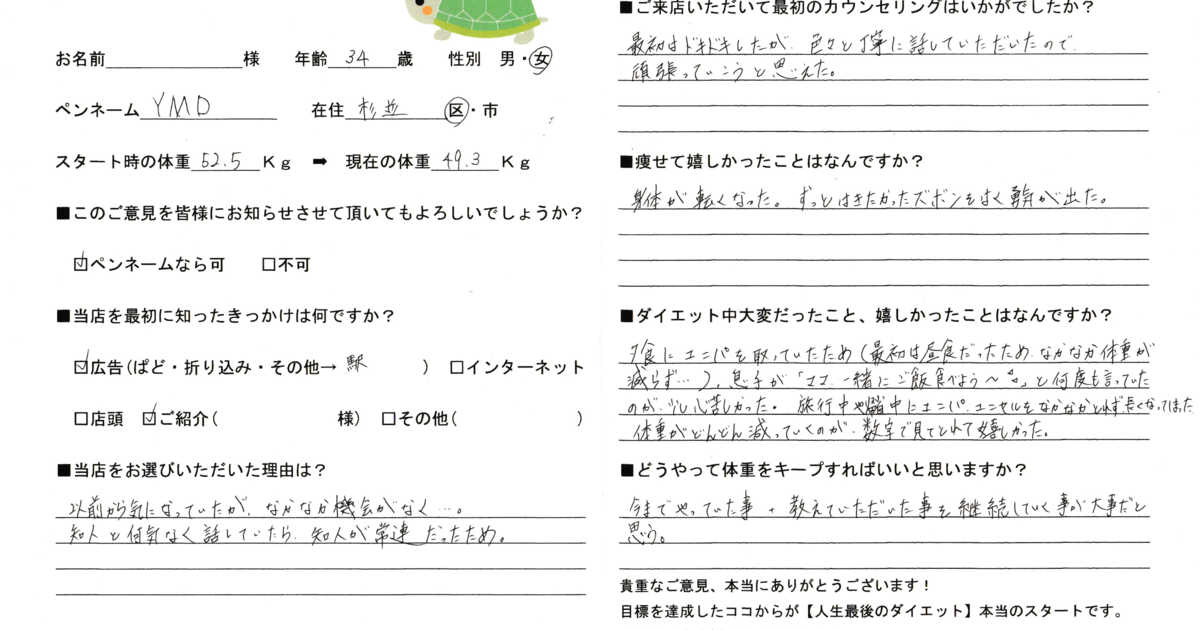 お名前 様 年齢 34 歳 性別 男・女
ペンネーム YMD 在住 杉並 区・市
スタート時の体重 52.5 Kg ➡ 現在の体重 49.3 Kg
■このご意見を皆様にお知らせさせて頂いてもよろしいでしょうか?
☑ペンネームなら可 □不可
■当店を最初に知ったきっかけは何ですか?
☑広告(ぱど・折り込み・その他→ 駅 ) □インターネット
□店頭 ☑ご紹介( 様) □その他( )
■当店をお選びいただいた理由は?
以前から気になっていたが、なかなか機会がなく…。
知人と何気なく話していたら、知人が常連だったため。
■ご来店いただいて最初のカウンセリングはいかがでしたか?
最初はドキドキしたが、色々と丁寧に話していただいたので、
頑張っていこうと思えた。
■痩せて嬉しかったことはなんですか?
身体が軽くなった。ずっとはきたかったズボンをはく勇気が出た。
■ダイエット中大変だったこと、嬉しかったことはなんですか?
夕食にユニパを取っていたため(最初は昼食だったため、なかなか体重が
減らず…)、息子が「ママ、一緒にご飯食べよう〜」と何度も言っていた
のが、少し心苦しかった。旅行中や 中にユニパ、ユニセルをなかなかとれず長くなってしまった
体重がどんどん減っていくのが、数字で見てとれて嬉しかった。
■どうやって体重をキープすればいいと思いますか?
今までやっていた事+教えていただいた事を継続していく事が大事だと
思う。
貴重なご意見、本当にありがとうございます!
目標を達成したココからが【人生最後のダイエット】本当のスタートです。